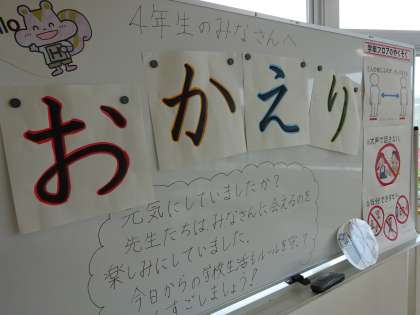 llo
4年生のみなさんへ
おかえり
元気にしていましたか？
先生たちはみなさんに会えるのを
楽しみにしていました。
今日からの学校生活もルールを守って
すごしましょう！
学年フロアのやくそく
大声で話さない。